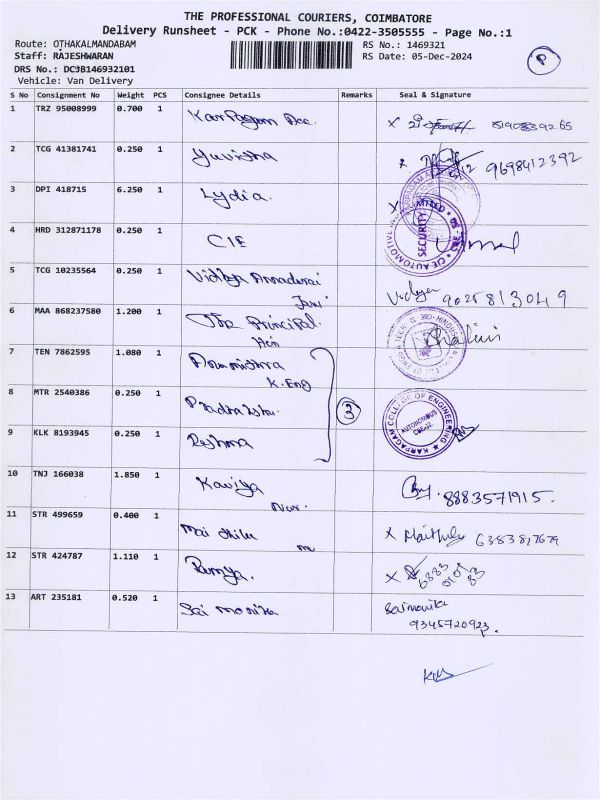 THE PROFESSIONAL COURIERS, COIMBATORE
Delivery Runsheet - PCK - Phone No.:0422-3505555 - Page No.:1
Route: OTHAKALMANDABAM RS No.: 1469321
Staff: RAJESHWARAN RS Date: 05-Dec-2024
P
DRS No.: DC3B146932101
Vehicle: Van Delivery
S No Consignment No Weight PCS Consignee Details Remarks Seal & Signature
1 TRZ 95008999 0.700 1 Karpagam x
2 TCG 41381741 0.250 1 Yuvisha x 9698412392
3 DPI 418715 6.250 1 Lydia. x
SECURITY
4 HRD 312871178 0.250 1 CIE
5 TCG 10235564 0.250 1 Vidhya Annadurai Vidya 9025813049
6 MAA 868237580 1.200 1 The Principal. Shalini
Hin
7 TEN 7862595 1.080 1
K. Eng
8 MTR 2540386 0.250 1 3 KARPAGAM COLLEGE OF ENGINEERING AUTONOMOUS
9 KLK 8193945 0.250 1 Reshma
10 TNJ 166038 1.850 1 Kaviya 8883571915.
Nur.
11 STR 499659 0.400 1 x Maithily
12 STR 424787 1.110 1 Ramya. x
13 ART 235181 0.520 1 Sai monika Saimonika
9345720923.